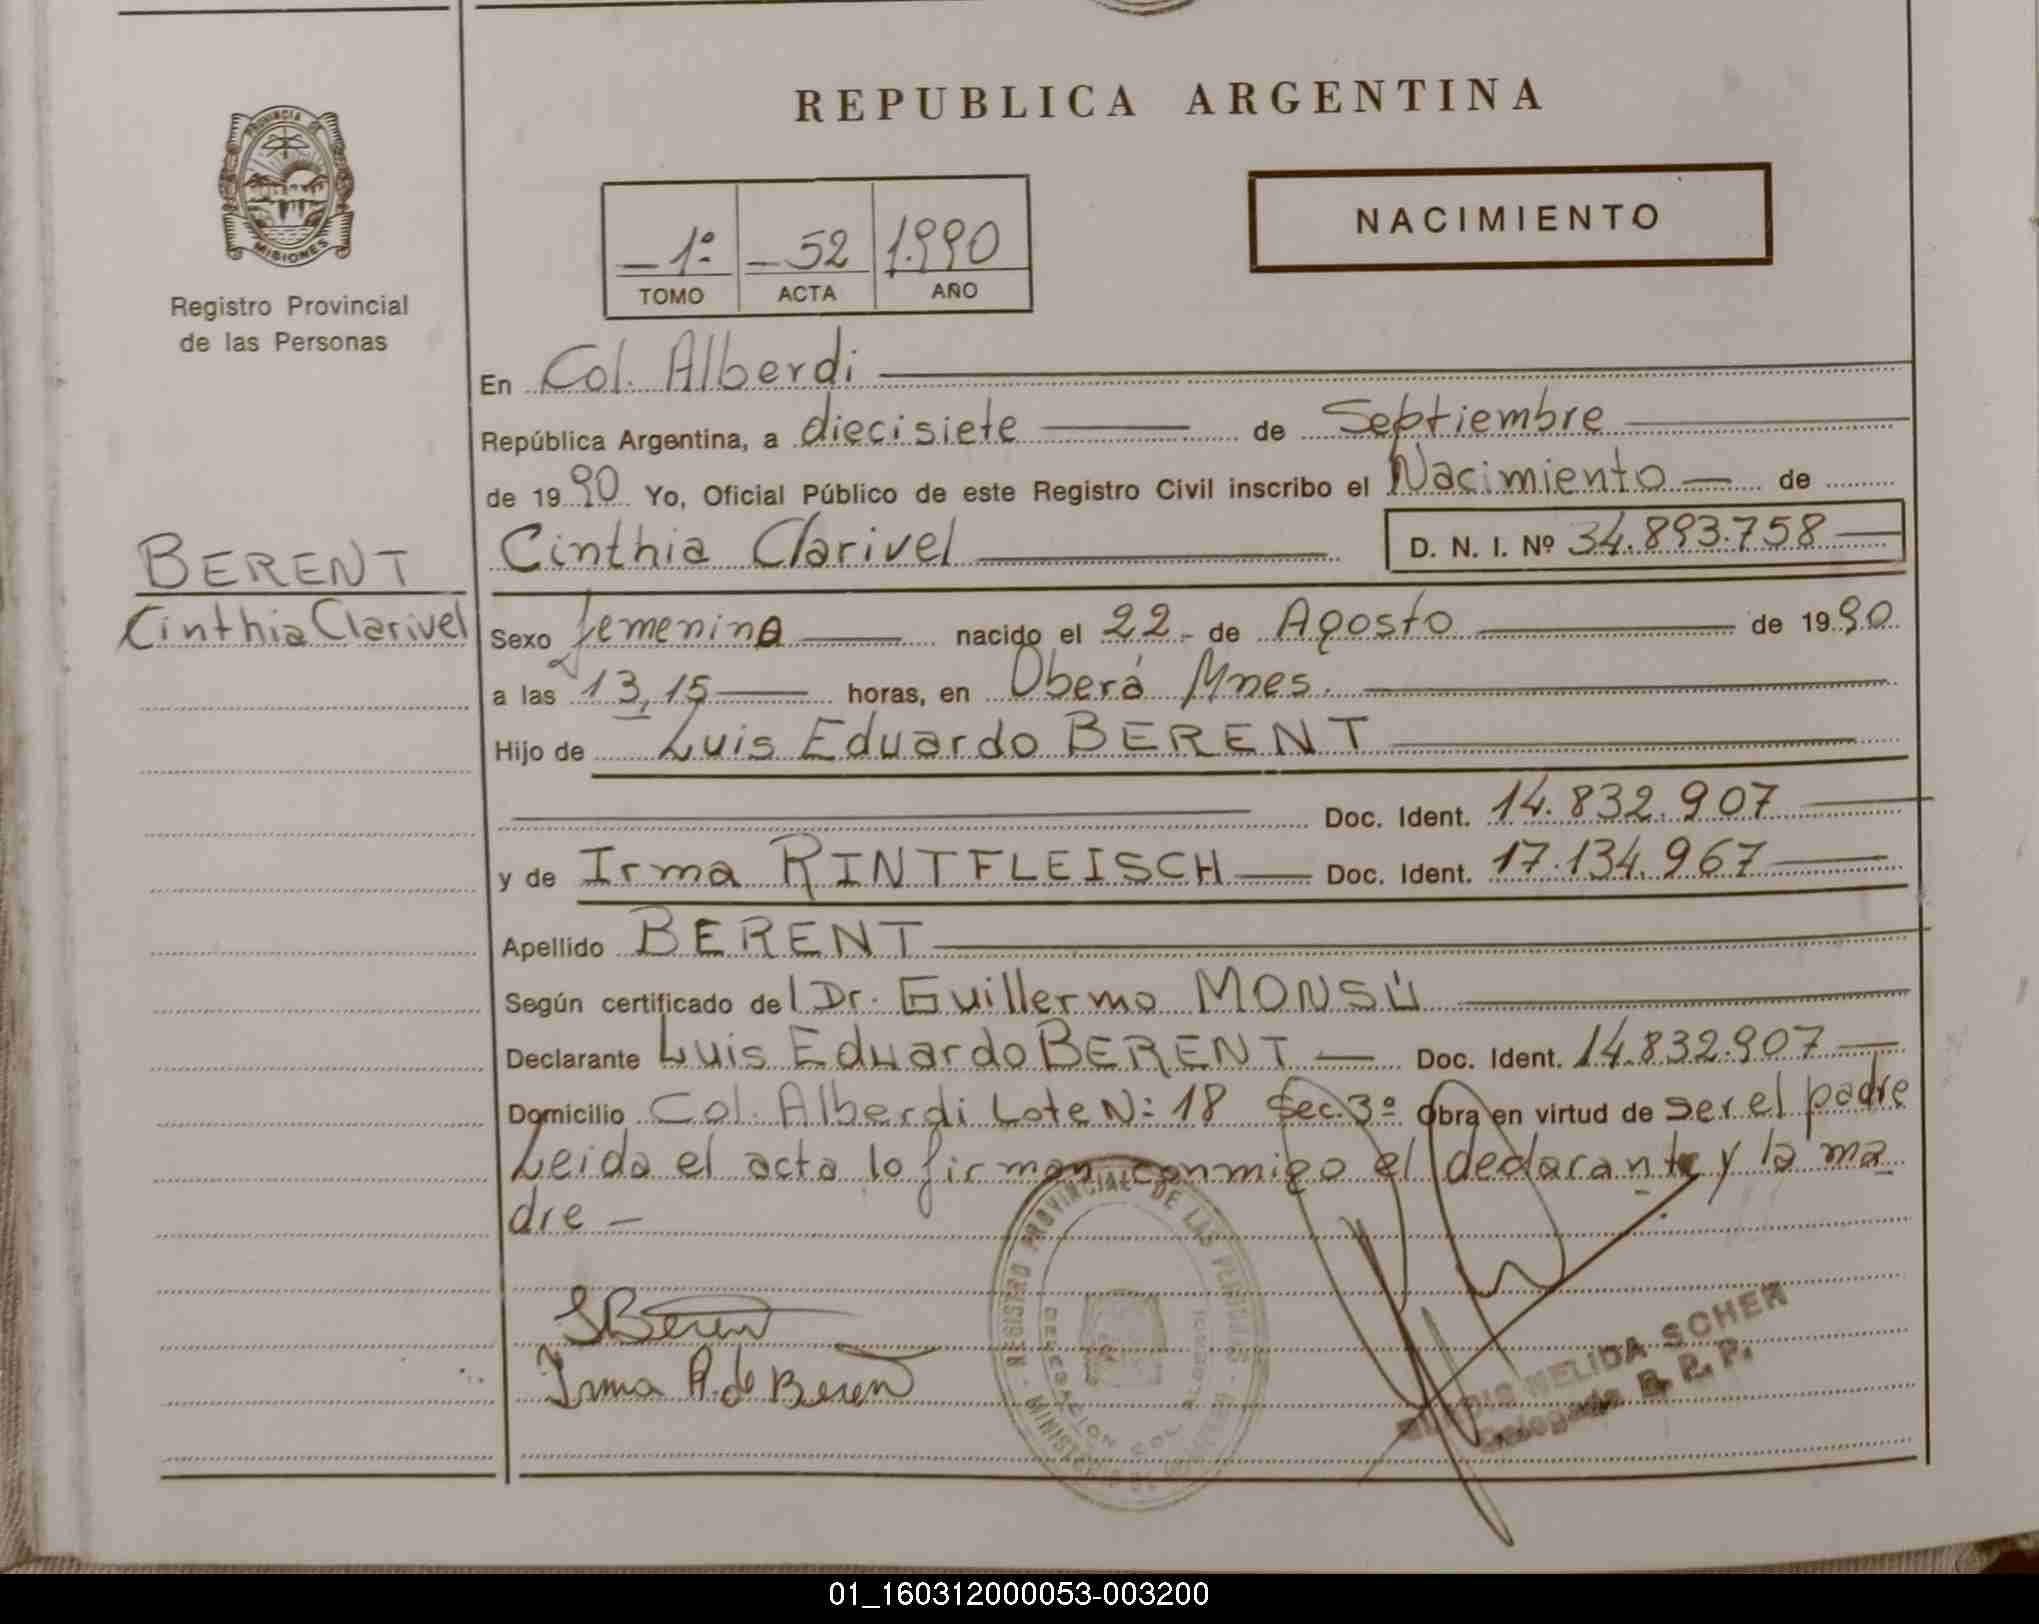 REPUBLICA ARGENTINA
PROVINCIA DE
MISIONES
Registro Provincial
de las Personas
1º 52 1.990
TOMO ACTA AÑO
NACIMIENTO
En Col. Alberdi
República Argentina, a diecisiete de Septiembre
de 1990 Yo, Oficial Público de este Registro Civil inscribo el Nacimiento de
BERENT
Cinthia Clarivel
Cinthia Clarivel D. N. I. Nº 34.893.758
Sexo femenina nacido el 22 de Agosto de 1990
a las 13,15 horas, en Oberá Mnes.
Hijo de Luis Eduardo BERENT
Doc. Ident. 14.832.907
y de Irma RINTFLEISCH Doc. Ident. 17.134.967
Apellido BERENT
Según certificado del Dr. Guillermo MONSÚ
Declarante Luis Eduardo BERENT Doc. Ident. 14.832.907
Domicilio Col. Alberdi Lote Nº 18 Sec. 3º Obra en virtud de ser el padre
Leida el acta lo firman conmigo el declarante y la ma
dre
REGISTRO PROVINCIAL DE LAS PERSONAS
MINISTERIO DE GOBIERNO
DELEGACION COL. ALBERDI
Berent
Irma R. de Berent
NELIDA SCHER
Delegada R. P. P.
01_160312000053-003200